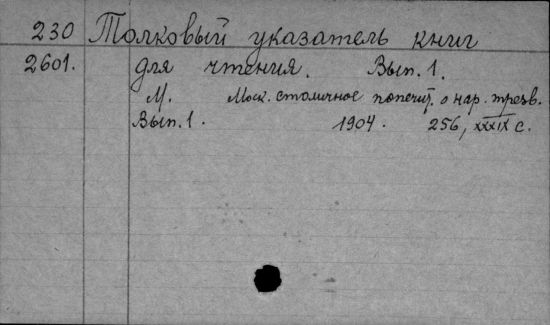 230 Толковый указатель книг
2601. для чтения. Вып. 1.
М. Моск. столичное попечит. о нар. трезв.
Вып. 1. 1904. 256, XXXIX с.